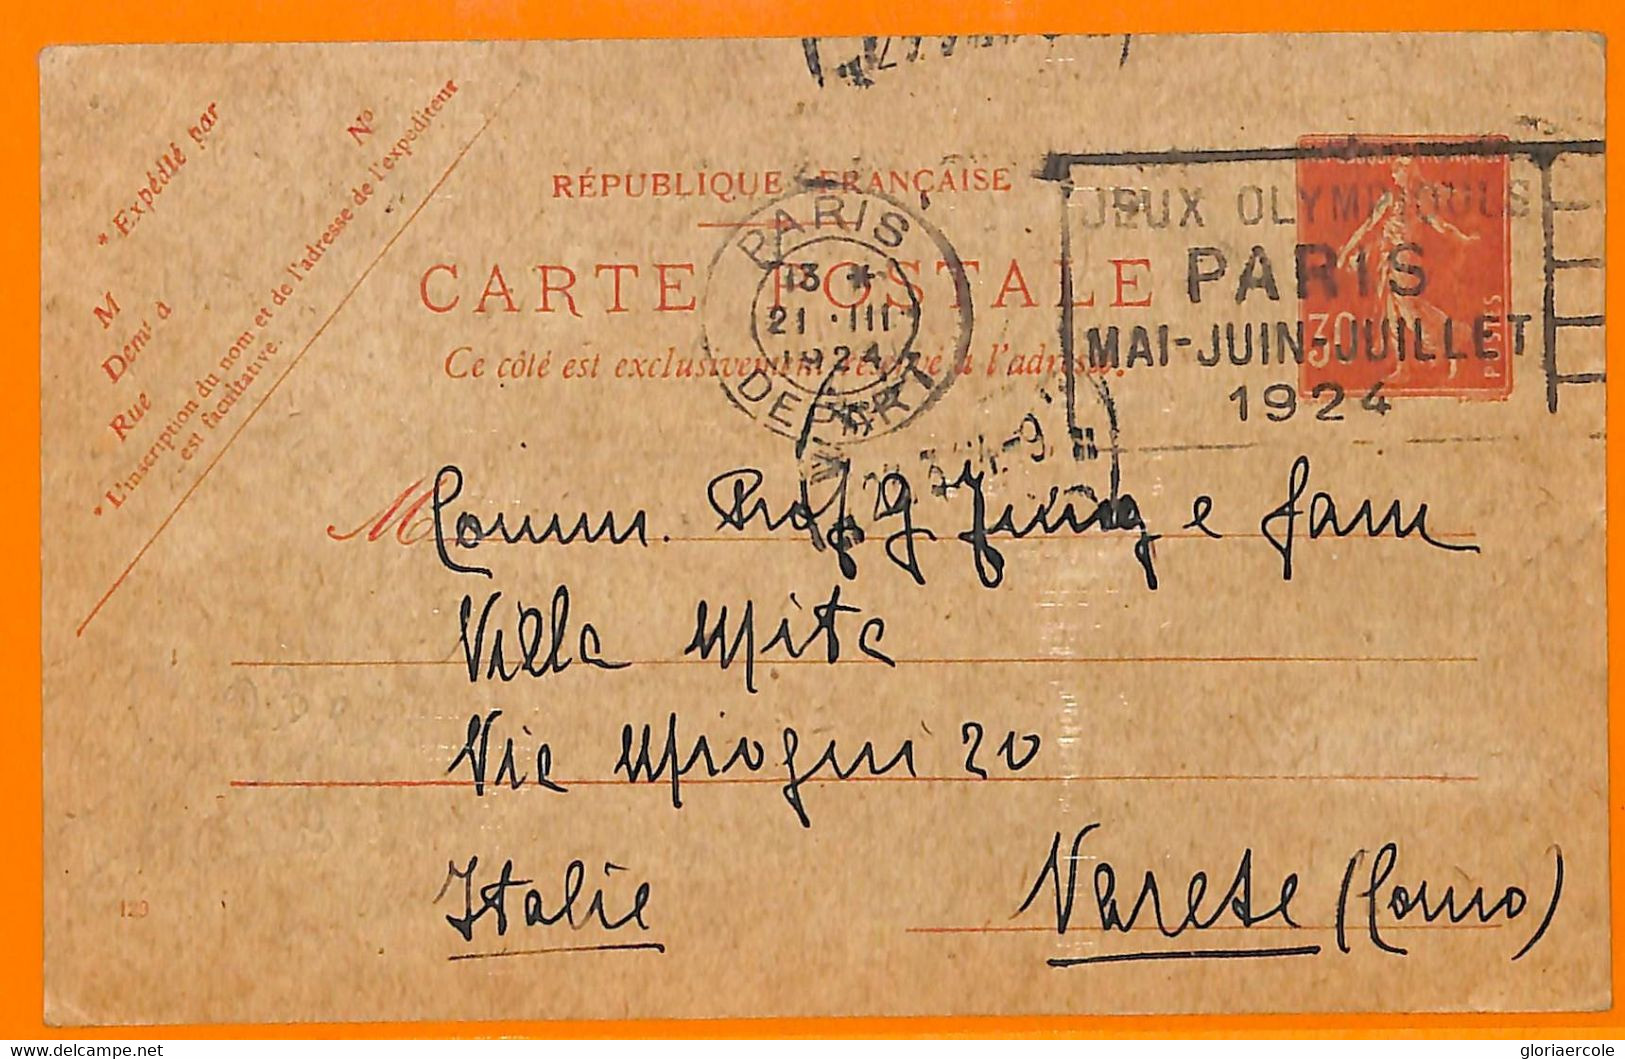 * Expédié par
M
N°
Demt à
Rue
* L'inscription du nom et de l'adresse de l'expéditeur
est facultative.
RÉPUBLIQUE FRANÇAISE
CARTE POSTALE
Ce côté est exclusivement réservé à l'adresse.
PARIS
13 *
21 · III
1924
DEPART
JEUX OLYMPIQUES
PARIS
MAI-JUIN-JUILLET
1924
30
POSTES
M
Comm. Prof. G Jung e fam
Villa Mita
Via
20
Italie
Varese (Como)
129
www.delcampe.net
gloriaercole